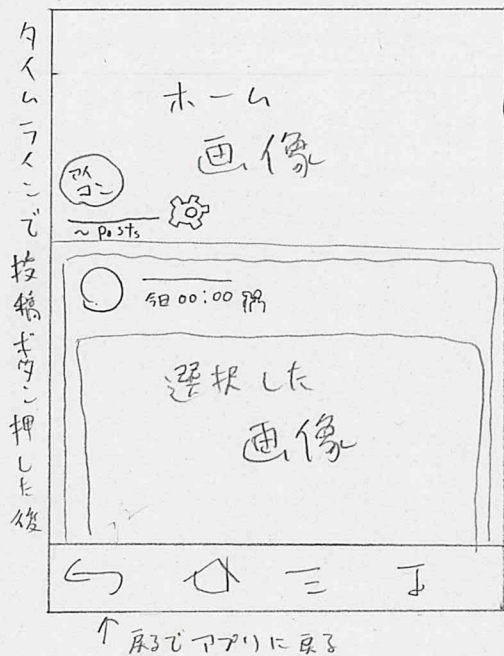 タイムラインで投稿ボタン押した後
ホーム
画像
アイ
コン
~ posts
今日 00:00
選択した
画像
↑ 戻るでアプリに戻る